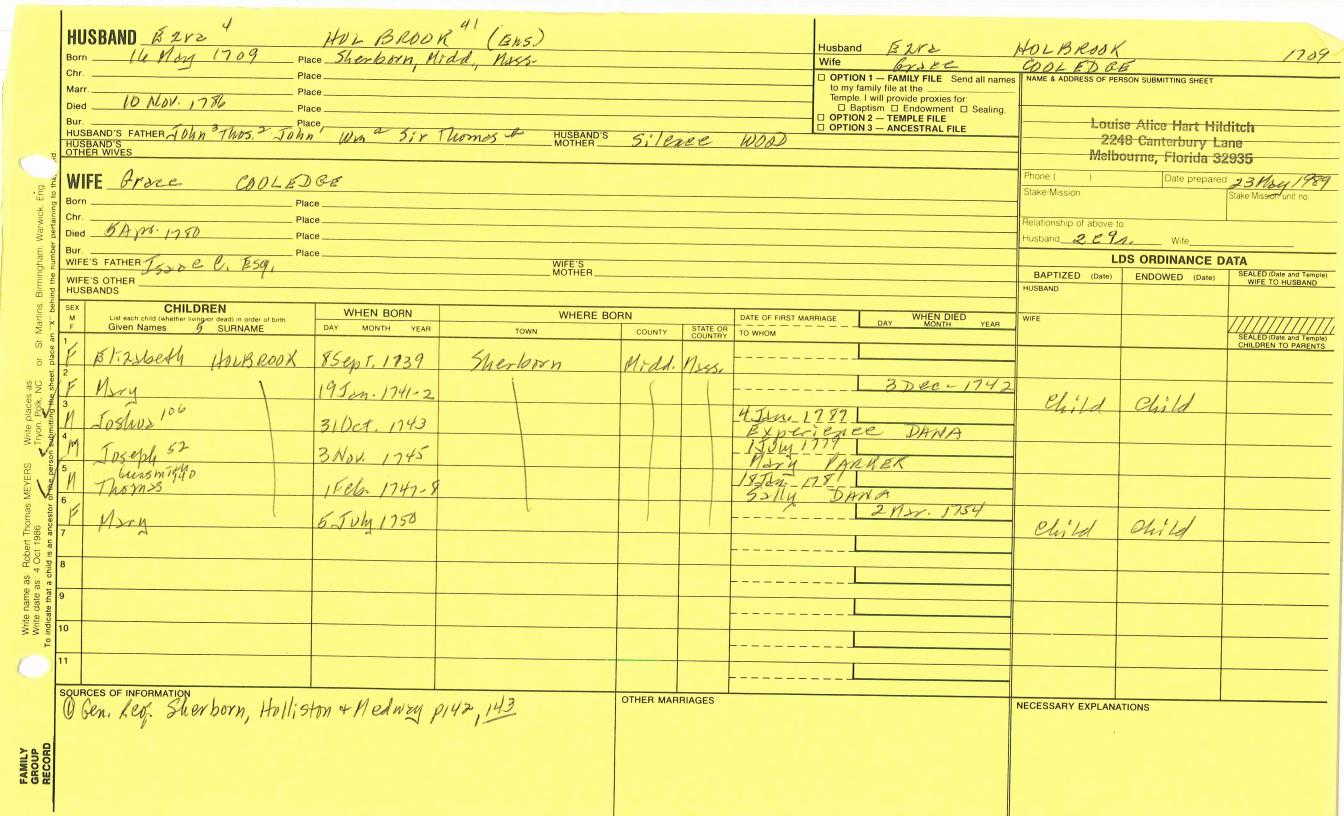 HUSBAND Ezra 4 HOLBROOK 41 (Ens)
Born 16 May 1709 Place Sherborn, Midd., Mass.
Chr. Place
Marr. Place
Died 10 Nov. 1786 Place
Bur. Place
HUSBAND'S FATHER John 3 Thos. 2 John 1 Wm a Sir Thomas b HUSBAND'S MOTHER Silence WOOD
HUSBAND'S OTHER WIVES
WIFE Grace COOLEDGE
Born Place
Chr. Place
Died 5 Apr. 1780 Place
Bur. Place
WIFE'S FATHER Isaac C. Esq. WIFE'S MOTHER
WIFE'S OTHER HUSBANDS
Husband Ezra HOLBROOK 1709
Wife Grace COOLEDGE
☐ OPTION 1 — FAMILY FILE Send all names
to my family file at the
Temple. I will provide proxies for:
☐ Baptism ☐ Endowment ☐ Sealing.
☐ OPTION 2 — TEMPLE FILE
☐ OPTION 3 — ANCESTRAL FILE
NAME & ADDRESS OF PERSON SUBMITTING SHEET
Louise Alice Hart Hilditch
2248 Canterbury Lane
Melbourne, Florida 32935
Phone ( ) Date prepared 23 May 1989
Stake/Mission Stake Mission unit no.
Relationship of above to:
Husband Wife
LDS ORDINANCE DATA
BAPTIZED (Date) ENDOWED (Date) SEALED (Date and Temple) WIFE TO HUSBAND
HUSBAND
WIFE
SEALED (Date and Temple) CHILDREN TO PARENTS
SEX M F
CHILDREN
List each child (whether living or dead) in order of birth
Given Names 5 SURNAME
WHEN BORN
DAY MONTH YEAR
WHERE BORN
TOWN COUNTY STATE OR COUNTRY
DATE OF FIRST MARRIAGE
TO WHOM
WHEN DIED
DAY MONTH YEAR
1 F Elizabeth HOLBROOK 8 Sept. 1739 Sherborn Midd. Mass.
2 F Mary 19 Jan. 1741-2 3 Dec - 1742 Child Child
3 M Joshua 106 31 Oct. 1743 4 June 1787
Experience DANA
4 M Joseph 52 3 Nov. 1745 1 July 1779
Mary PARKER
5 M gunsmith Thomas 1 Feb. 1747-8 18 Jan. 1781
Sally DANA
6 F Mary 5 July 1750 2 Mar. 1754 Child Child
7
8
9
10
11
SOURCES OF INFORMATION
① Gen. Reg. Sherborn, Holliston + Medway p142, 143
OTHER MARRIAGES
NECESSARY EXPLANATIONS
Write name as: Robert Thomas MEYERS Write places as: Tryon, Polk, NC or St Martins, Birmingham, Warwick, Eng.
Write date as: 4 Oct 1986
To indicate that a child is an ancestor of the person submitting the sheet, place an "X" behind the number pertaining to
FAMILY GROUP RECORD